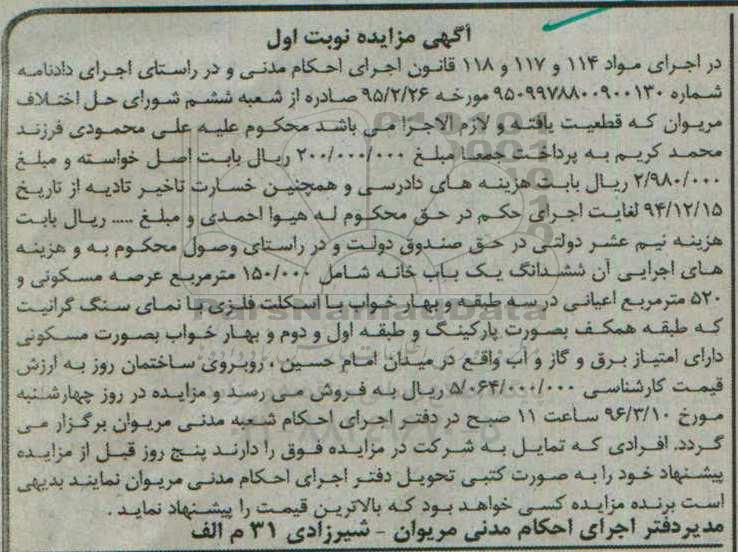 آگهی مزایده نوبت اول
در اجرای مواد ۱۱۴ و ۱۱۷ و ۱۱۸ قانون اجرای احکام مدنی و در راستای اجرای دادنامه
شماره ۹۵۰۹۹۷۸۸۰۰۹۰۰۱۳۰ مورخه ۹۵/۲/۲۶ صادره از شعبه ششم شورای حل اختلاف
مریوان که قطعیت یافته و لازم الاجرا می باشد محکوم علیه علی محمودی فرزند
محمد کریم به پرداخت جمعا مبلغ ۲۰۰/۰۰۰/۰۰۰ ریال بابت اصل خواسته و مبلغ
۲/۹۸۰/۰۰۰ ریال بابت هزینه های دادرسی و همچنین خسارت تاخیر تادیه از تاریخ
۹۴/۱۲/۱۵ لغایت اجرای حکم در حق محکوم له هیوا احمدی و مبلغ ..... ریال بابت
هزینه نیم عشر دولتی در حق صندوق دولت و در راستای وصول محکوم به و هزینه
های اجرایی آن ششدانگ یک باب خانه شامل ۱۵۰/۰۰۰ مترمربع عرصه مسکونی و
۵۲۰ مترمربع اعیانی در سه طبقه و بهار خواب با اسکلت فلزی با نمای سنگ گرانیت
که طبقه همکف بصورت پارکینگ و طبقه اول و دوم و بهار خواب بصورت مسکونی
دارای امتیاز برق و گاز و آب واقع در میدان امام حسین ، روبروی ساختمان روز به ارزش
قیمت کارشناسی ۵/۰۶۴/۰۰۰/۰۰۰ ریال به فروش می رسد و مزایده در روز چهارشنبه
مورخ ۹۶/۳/۱۰ ساعت ۱۱ صبح در دفتر اجرای احکام شعبه مدنی مریوان برگزار می
گردد. افرادی که تمایل به شرکت در مزایده فوق را دارند پنج روز قبل از مزایده
پیشنهاد خود را به صورت کتبی تحویل دفتر اجرای احکام مدنی مریوان نمایند بدیهی
است برنده مزایده کسی خواهد بود که بالاترین قیمت را پیشنهاد نماید .
مدیردفتر اجرای احکام مدنی مریوان - شیرزادی ۳۱ م الف
ParsNamadData